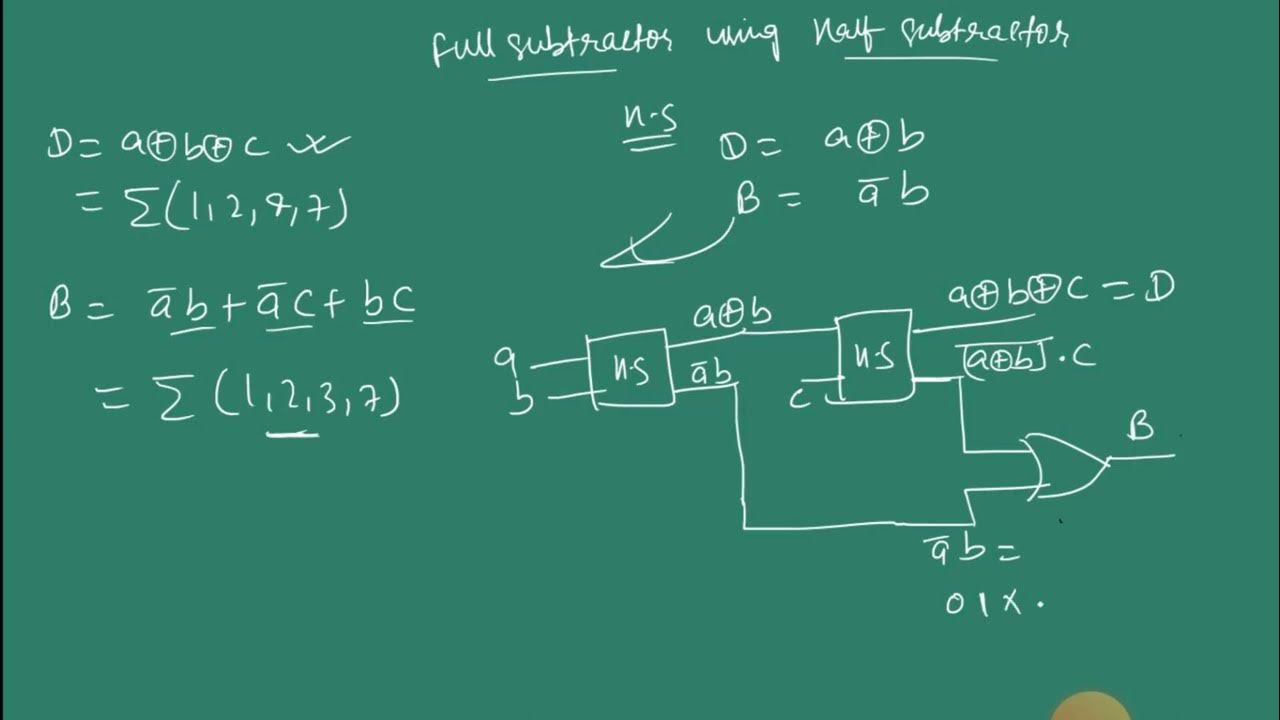 Full subtractor using Half subtractor
D = a⊕b⊕c
= Σ(1,2,4,7)
B = a̅b + a̅c + bc
= Σ(1,2,3,7)
H.S
D = a⊕b
B = a̅b
a
b
H.S
a⊕b
a̅b
c
H.S
a⊕b⊕c = D
[a⊕b]̅ · c
B
a̅b =
01X.